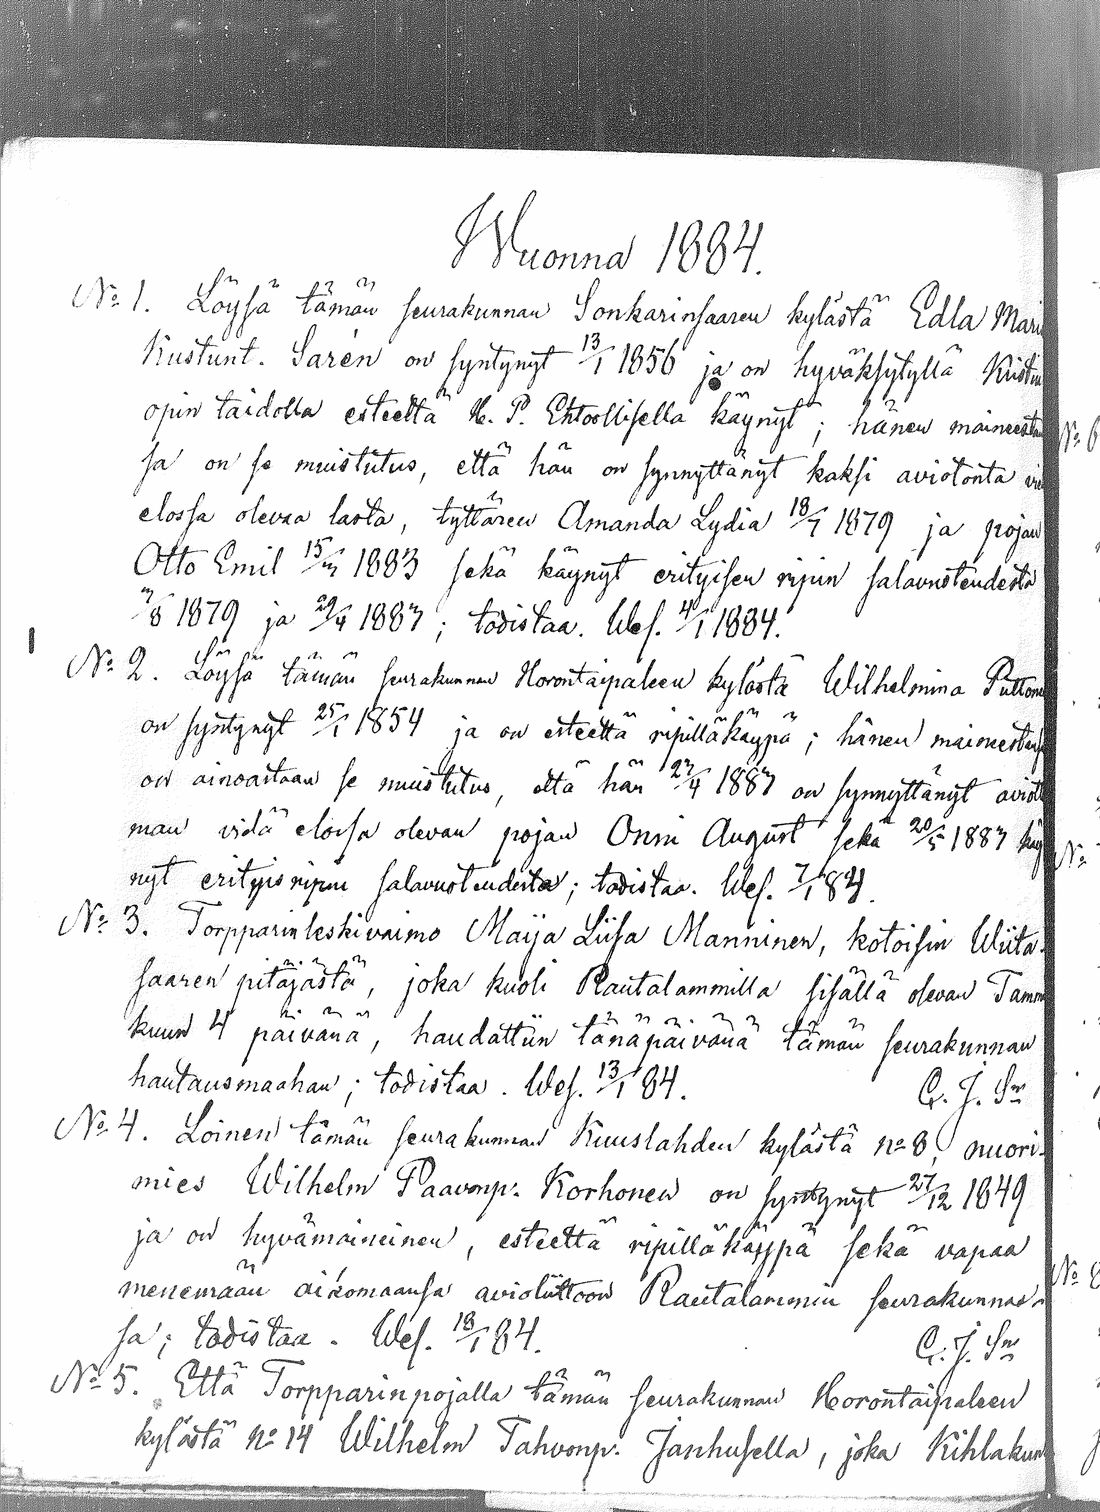 Wuonna 1884.
No 1. Löysä tämän seurakunnan Sonkarinsaaren kylästä Edla Mari
Kustunt. Sarén on syntynyt 13/1 1856 ja on hyväksytyllä Kristin
opin taidolla esteettä H. P. Ehtoollisella käynyt; hänen maineesta
sa on se muistutus, että hän on synnyttänyt kaksi aviotonta vie
elossa olevaa lasta, tyttären Amanda Lydia 18/7 1879 ja pojan
Otto Emil 15/3 1883 sekä käynyt erityisen ripin salavuoteudesta
3/8 1879 ja 29/4 1883; todistaa. Wes. 4/1 1884.
No 2. Löysä tämän seurakunnan Horontaipaleen kylästä Wilhelmina Puttone
on syntynyt 25/1 1854 ja on esteettä ripilläkäypä; hänen maineestansa
on ainoastaan se muistutus, että hän 23/4 1883 on synnyttänyt aviott
man vielä elossa olevan pojan Onni August sekä 20/5 1883 käy
nyt erityisripin salavuoteudesta; todistaa. Wes. 7/1 84.
No 3. Torpparinleskivaimo Maija Liisa Manninen, kotoisin Wiita-
saaren pitäjästä, joka kuoli Rautalammilla sisällä olevan Tamm
kuun 4 päivänä, haudattiin tänäpäivänä tämän seurakunnan
hautausmaahan; todistaa. Wes. 13/1 84. G. J. Sn
No 4. Loinen tämän seurakunnan Kuuslahden kylästä no 8, nuori-
mies Wilhelm Paavonp. Korhonen on syntynyt 27/12 1849
ja on hyvämaineinen, esteettä ripilläkäypä sekä vapaa
menemään aikomaansa avioliittoon Rautalammin seurakunnas-
sa; todistaa. Wes. 18/1 84. G. J. Sn
No 5. Että Torpparinpojalla tämän seurakunnan Horontaipaleen
kylästä no 14 Wilhelm Tahvonp. Janhusella, joka Kihlakun